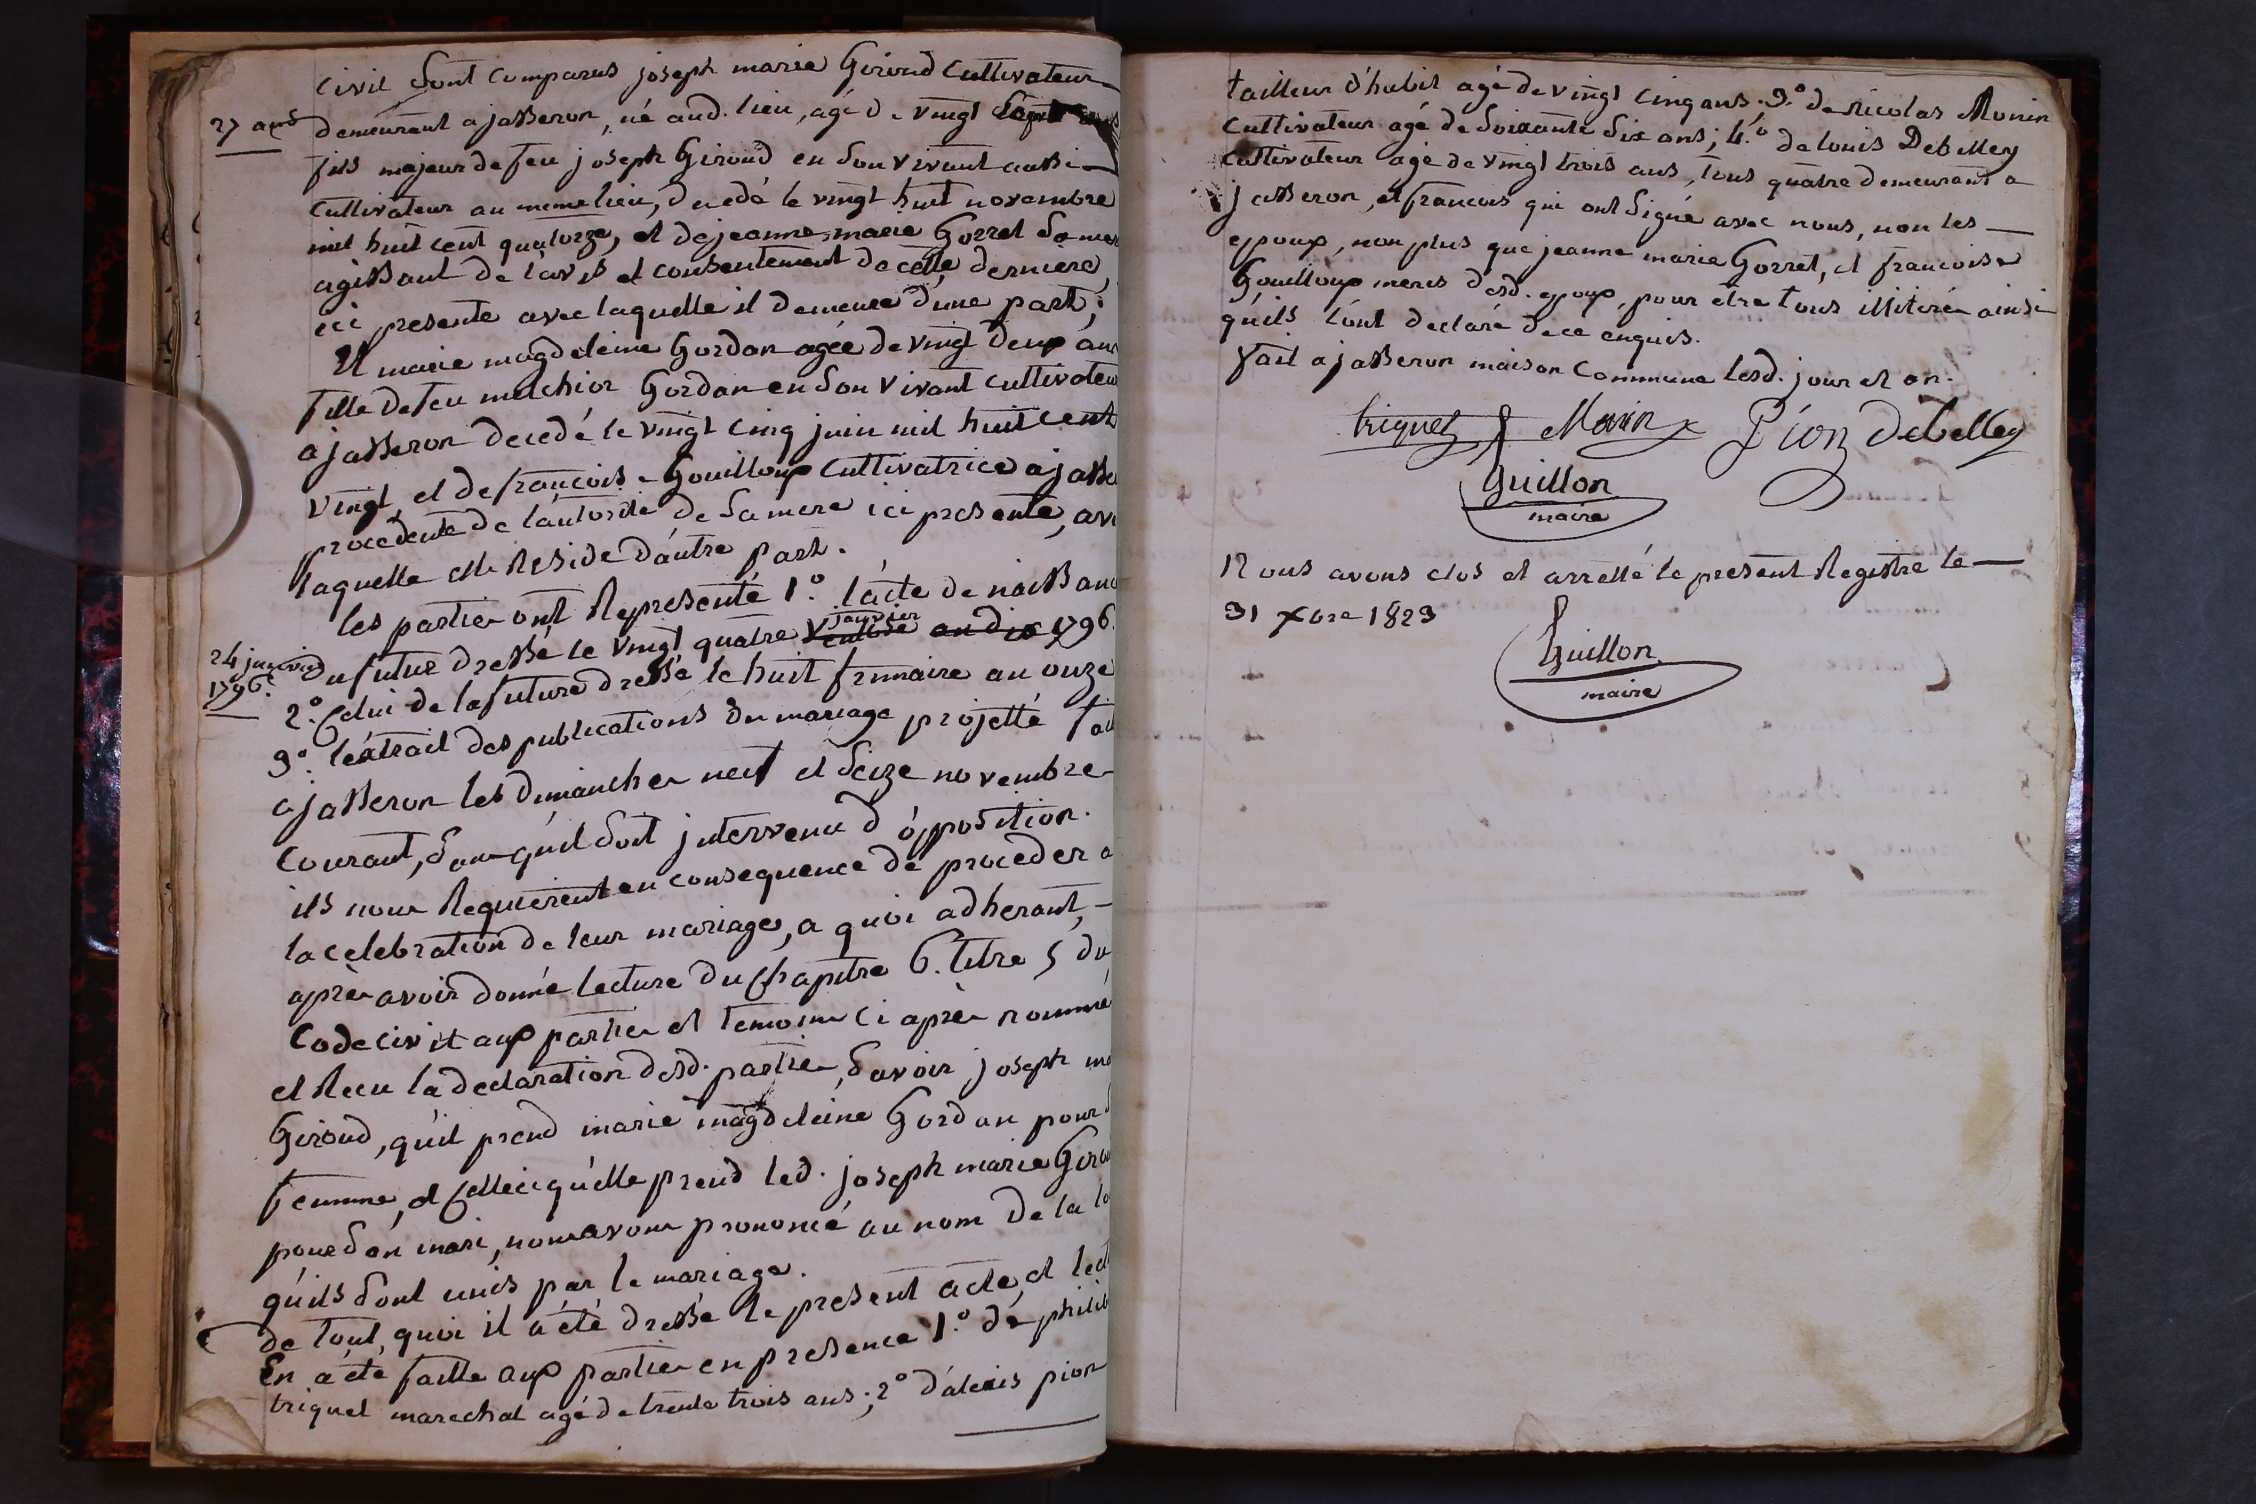 civil Sont comparus joseph marie Giroud Cultivateur
27 ans
demeurant a jasseron, né aud. lieu, agé de vingt Sept ans
fils majeur de feu joseph Giroud en Son vivant aussi
Cultivateur au meme lieu, decedé le vingt huit novembre
mil huit cent quatorze, et de jeanne marie Gorret Sa mere
agissant de l'avis et consentement de cette derniere,
ici presente avec laquelle il demeure d'une part;
Et marie magdeleine Gordan agée de vingt Deux ans
fille de feu melchior Gordan en Son vivant cultivateur
a jasseron decedé le vingt cinq juin mil huit cent
vingt, et de francoise Gouilloux cultivatrice a jasse
procedente de l'autorité de Sa mere ici presente, ave
laquelle elle Reside d'autre part.
les parties ont Representé 1.° l'acte de naissanc
janvier
24 janvier
1796.
du futur dressé le vingt quatre ventose an dix 1796.
2.° Celui de la future dressé le huit frimaire an onze
3.° l'extrait des publications du mariage projetté fai
a jasseron les dimanches neuf et Seize novembre
Courant, Sans qu'il Soit jntervenu d'opposition.
ils nous Requierent en consequence de proceder a
la celebration de leur mariage, a quoi adherant,
après avoir donné lecture du Chapitre 6. titre 5 du
Code civil aux parties et temoins ci après nommé
et Recu la declaration desd. parties, Savoir joseph ma
Giroud, qu'il prend marie magdeleine Gordan pour S
femme, et Celleci qu'elle prend led. joseph marie Girou
pour Son mari, nous avons prononcé au nom de la lo
qu'ils Sont unis par le mariage.
de tout quoi il a été dressé le present acte, et lect
En a été faitte aux parties en presence 1.° de philib
triquet marechal agé de trente trois ans; 2.° d'alexis pion
tailleur d'habit agé de vingt cinq ans. 3.° de Nicolas Monin
Cultivateur agé de Soixante Six ans; 4.° de louis Debelley
Cultivateur agé de vingt trois ans, tous quatre demeurant a
jasseron, et francois qui ont Signé avec nous, non les
epoux, non plus que jeanne marie Gorret, et francoise
Gouilloux meres desd. epoux, pour etre tous illiteré ainsi
qu'ils l'ont declaré de ce enquis.
fait a jasseron maison Commune lesd. jour et an.
triquet Monin Pion debelley
Guillon
maire
Nous avons clos et arretté le present Registre le
31 xbre 1823
Guillon
maire